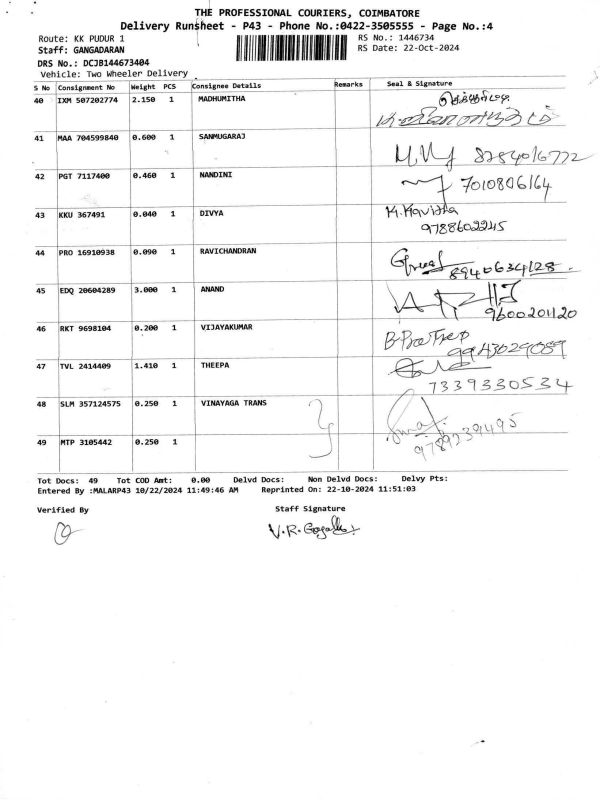 THE PROFESSIONAL COURIERS, COIMBATORE
Delivery Runsheet - P43 - Phone No.:0422-3505555 - Page No.:4
Route: KK PUDUR 1 RS No.: 1446734
Staff: GANGADARAN RS Date: 22-Oct-2024
DRS No.: DCJB144673404
Vehicle: Two Wheeler Delivery
S No Consignment No Weight PCS Consignee Details Remarks Seal & Signature
40 IXM 507202774 2.150 1 MADHUMITHA
41 MAA 704599840 0.600 1 SANMUGARAJ 8784016772
42 PGT 7117400 0.460 1 NANDINI 7010806164
43 KKU 367491 0.040 1 DIVYA K. Kavitha
9788602245
44 PRO 16910938 0.090 1 RAVICHANDRAN 8940634128
45 EDQ 20604289 3.000 1 ANAND
9600201120
46 RKT 9698104 0.200 1 VIJAYAKUMAR
9943029089
47 TVL 2414409 1.410 1 THEEPA
7339330534
48 SLM 357124575 0.250 1 VINAYAGA TRANS
9789239495
49 MTP 3105442 0.250 1
Tot Docs: 49 Tot COD Amt: 0.00 Delvd Docs: Non Delvd Docs: Delvy Pts:
Entered By :MALARP43 10/22/2024 11:49:46 AM Reprinted On: 22-10-2024 11:51:03
Verified By Staff Signature
V.R.